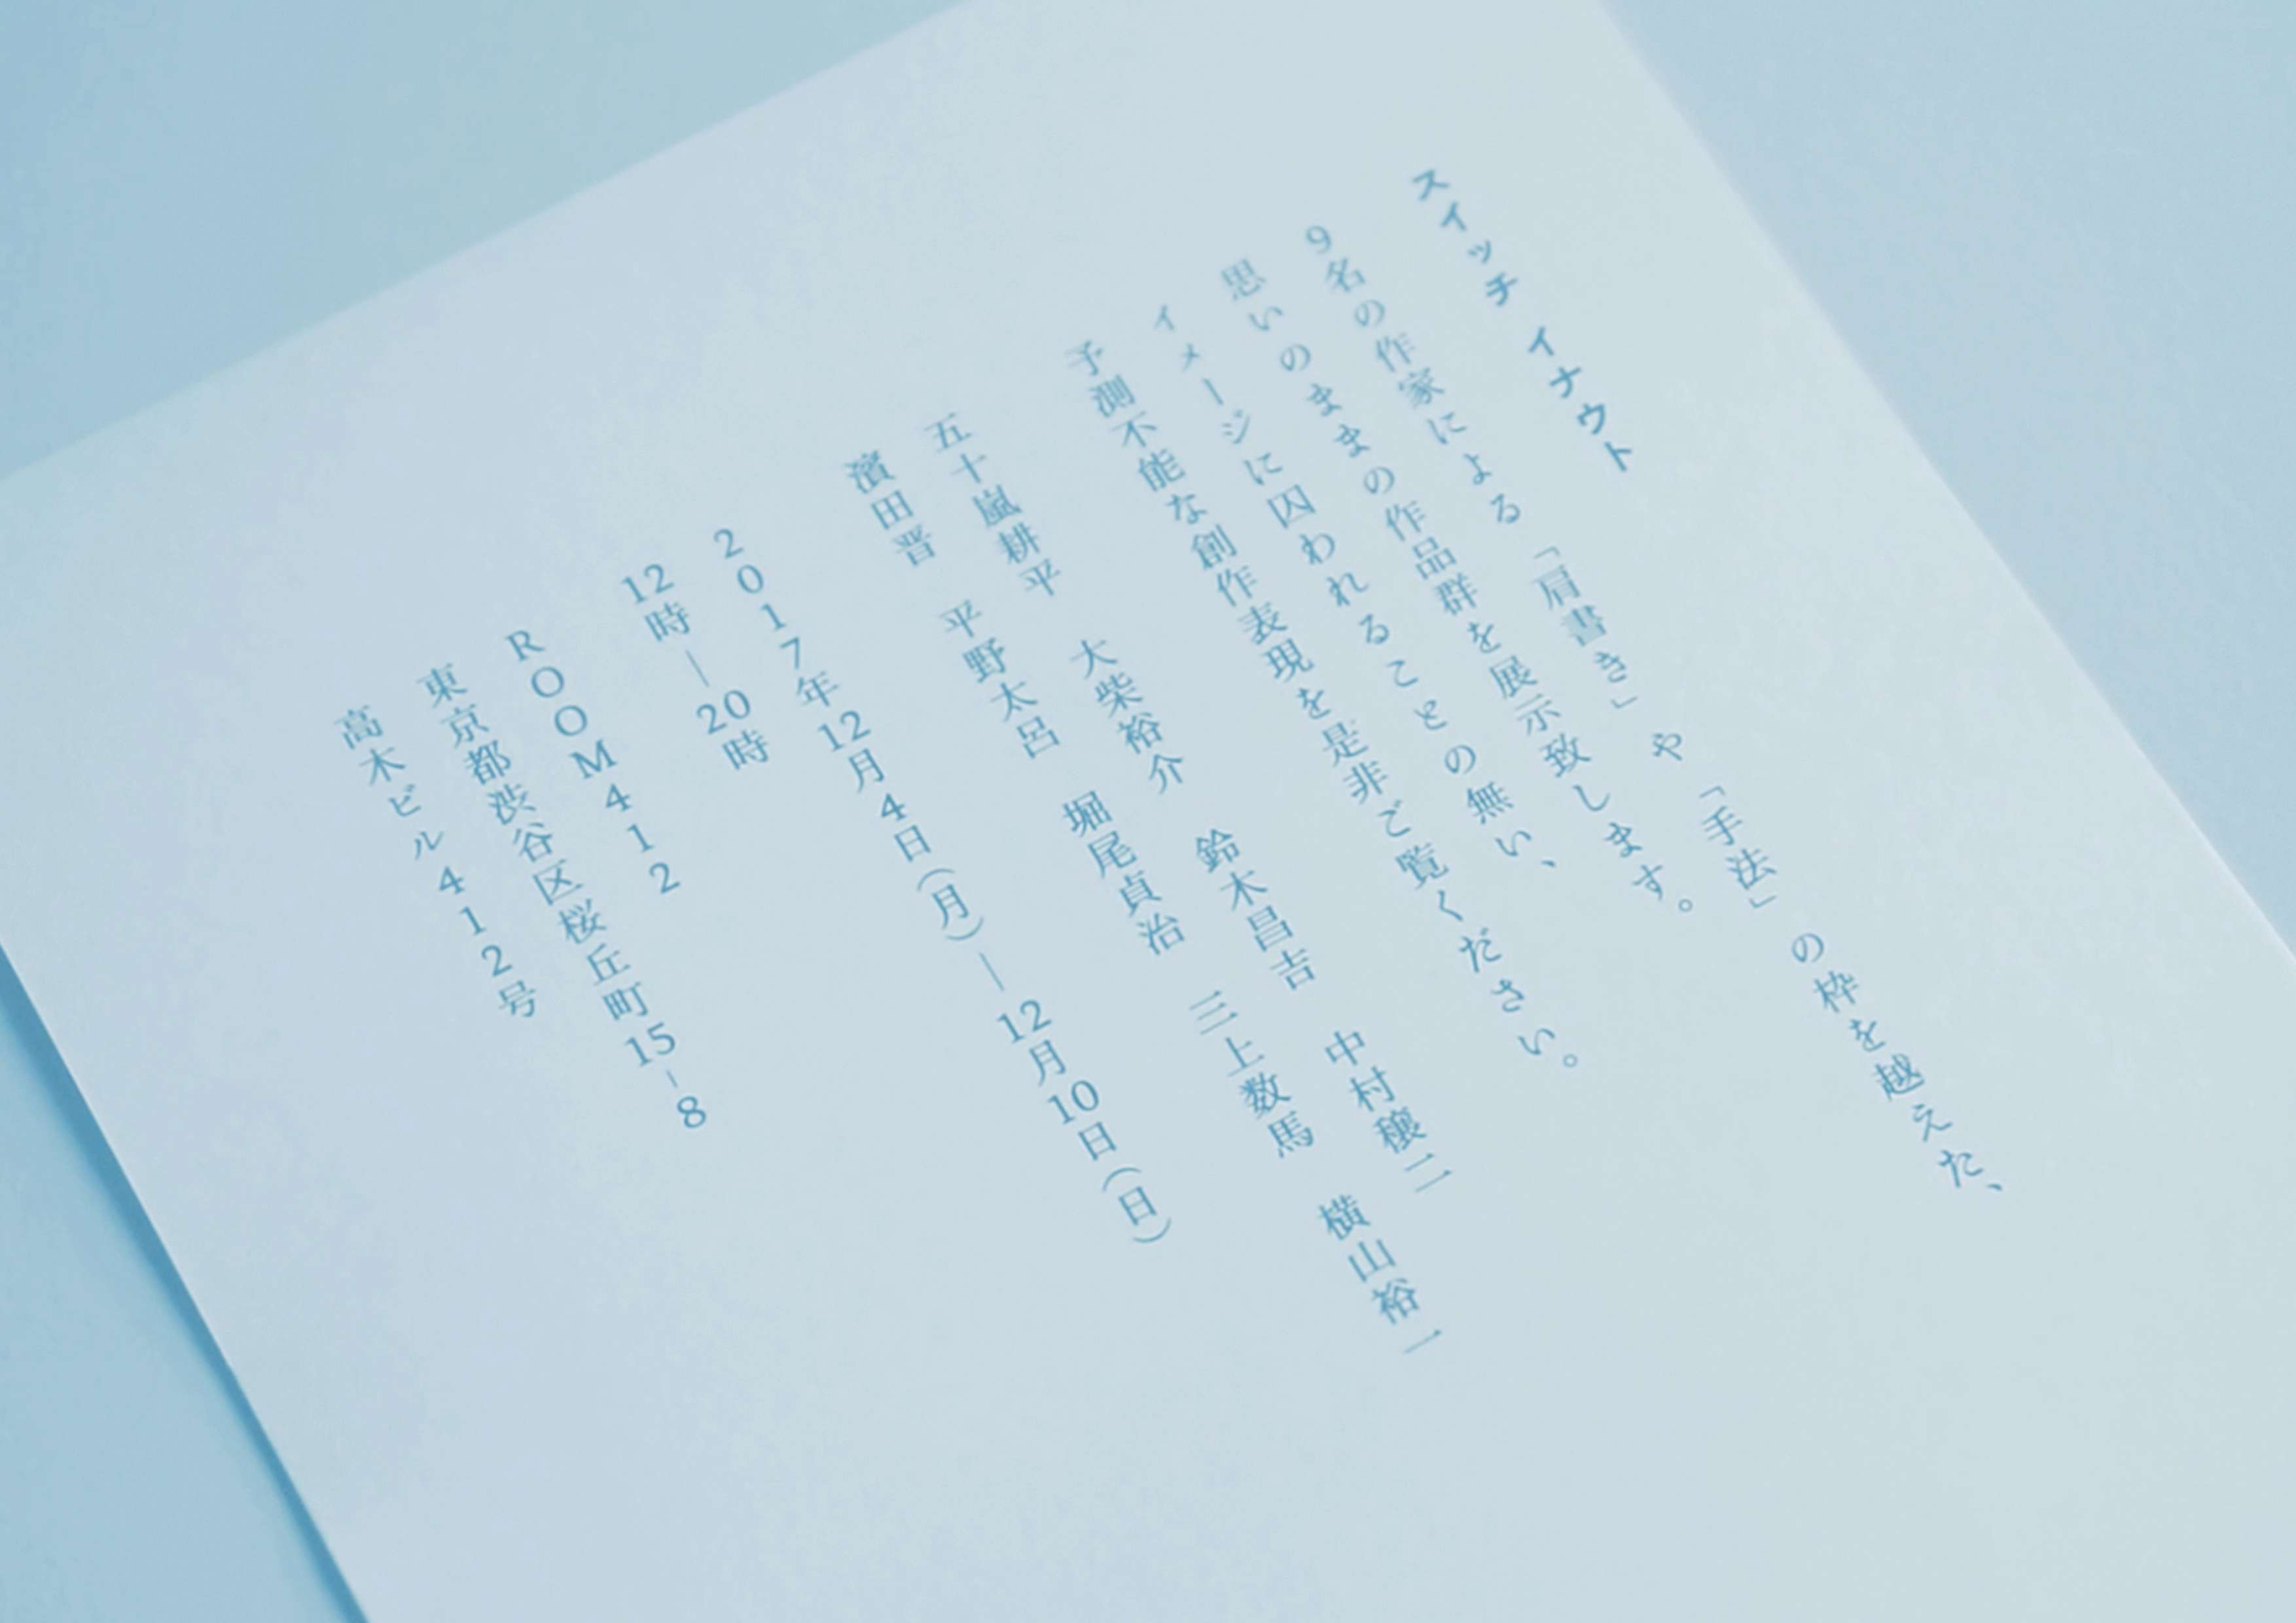 スイッチ イナウト
9名の作家による「肩書き」や「手法」の枠を越えた、
思いのままの作品群を展示致します。
イメージに囚われることの無い、
予測不能な創作表現を是非ご覧ください。
五十嵐耕平　大柴裕介　鈴木昌吉　中村穣二
濱田晋　平野太呂　堀尾貞治　三上数馬　横山裕一
2017年12月4日（月）―12月10日（日）
12時―20時
ROOM412
東京都渋谷区桜丘町15-8
高木ビル412号